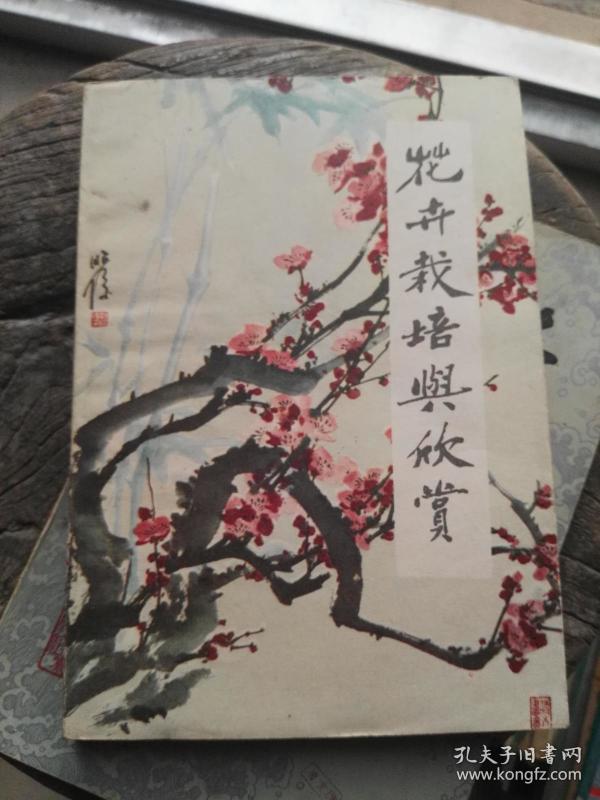 花卉栽培與欣賞
孔夫子旧书网
www.kongfz.com